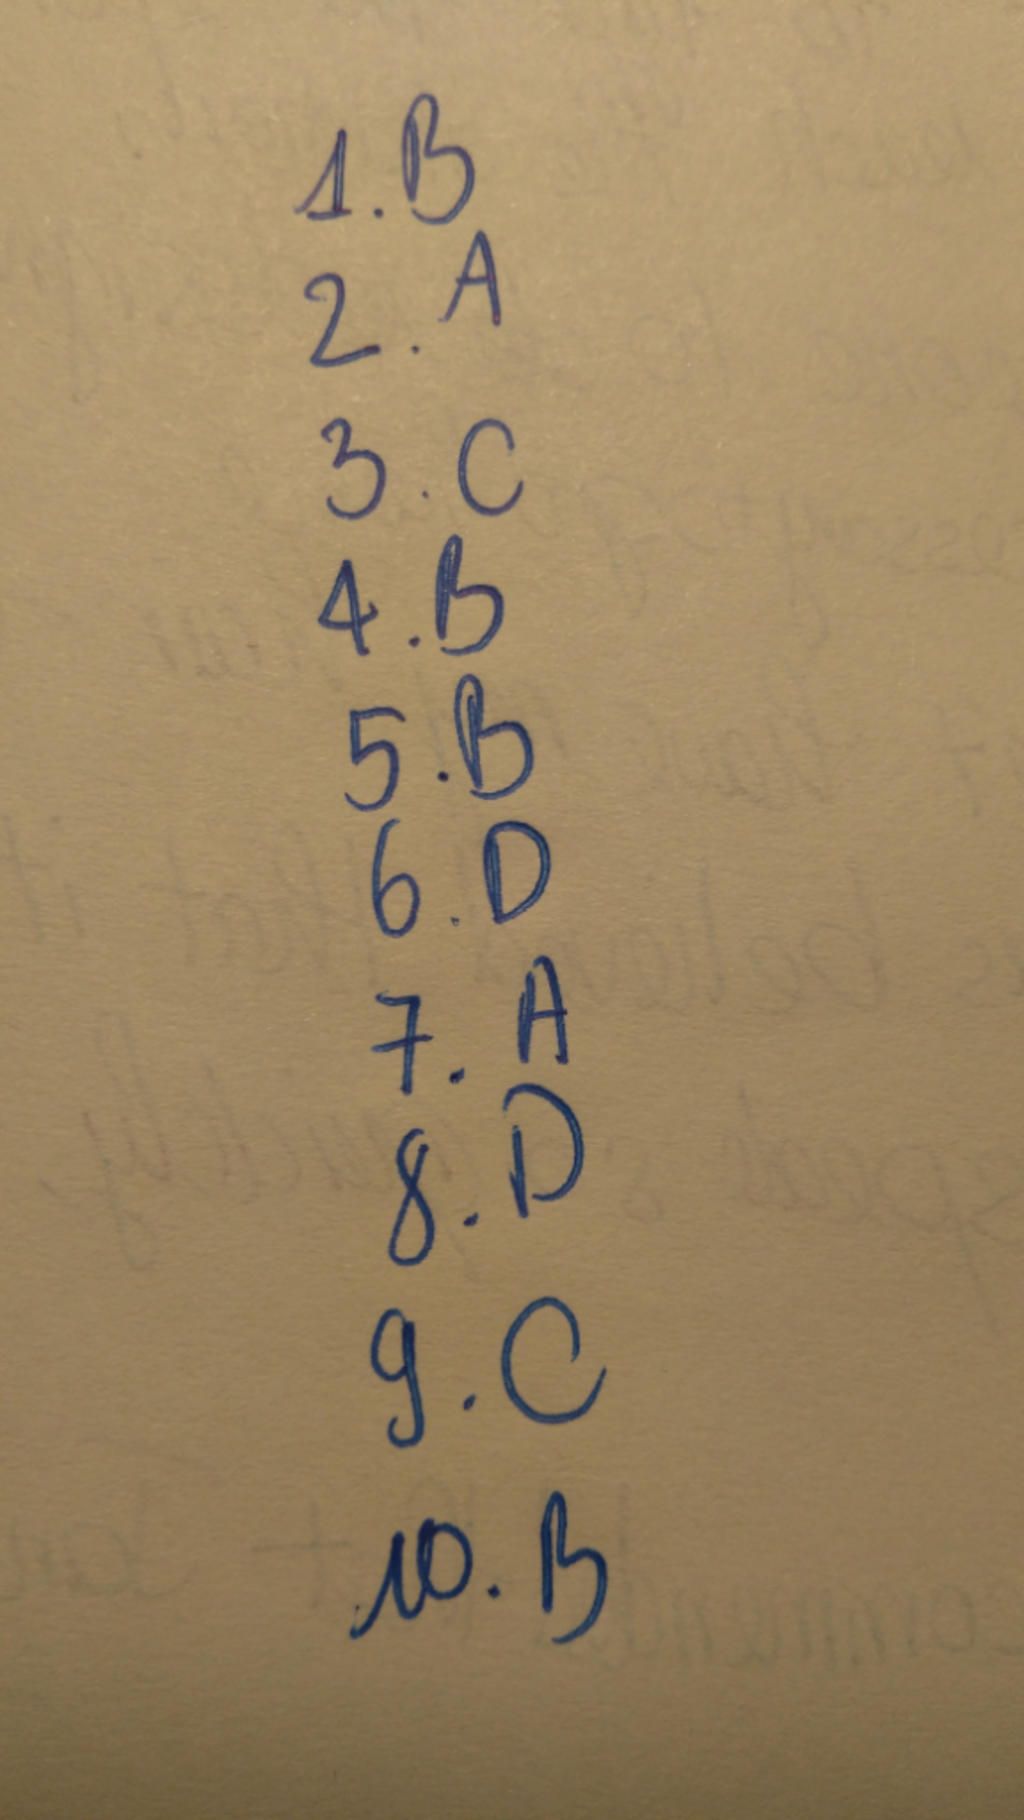 1. B
2. A
3. C
4. B
5. B
6. D
7. A
8. D
9. C
10. B